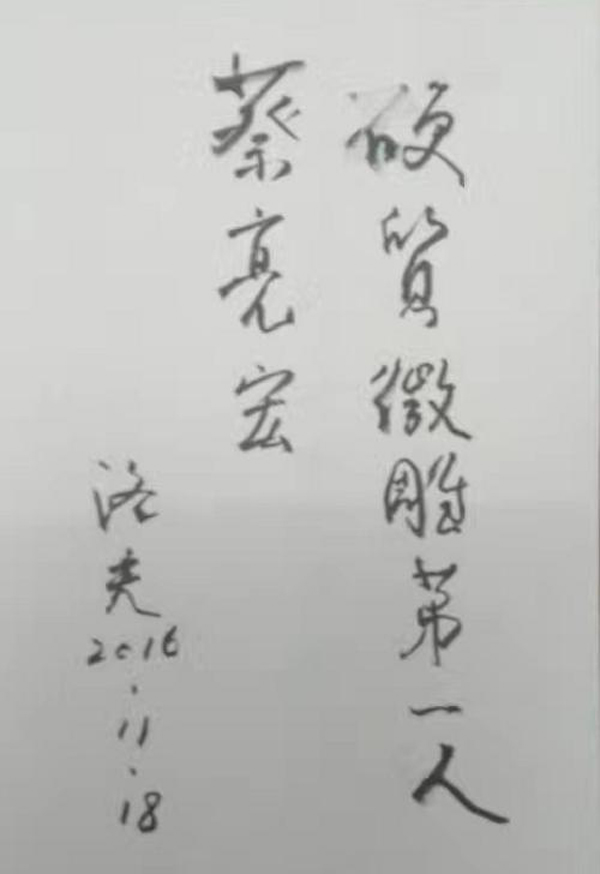 硬質微雕第一人
蔡亮宏
洛夫
2016.11.18